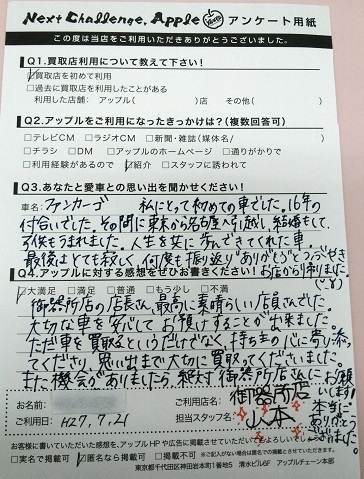 Next Challenge. Apple アンケート用紙
この度は当店をご利用いただきありがとうございました。
Q1.買取店利用について教えて下さい!
□買取店を初めて利用
□過去に買取店を利用したことがある
利用した店舗: アップル( )店 その他( )
Q2.アップルをご利用になったきっかけは?(複数回答可)
□テレビCM □ラジオCM □新聞・雑誌(媒体名/ )
□チラシ □DM □アップルのホームページ □通りがかりで
□利用経験があるので □紹介 □スタッフに誘われて
Q3.あなたと愛車との思い出を聞かせください!
車名: ファンカーゴ 私にとって初めての車でした。16年の
付合いでした。その間に東京から名古屋へ引越し、結婚もして、
子供もうまれました。人生を共に歩んできてくれた車。
最後はとても寂しく、何度も振り返り"ありがとう"とつぶやき
お店から帰りました。
Q4.アップルに対する感想をぜひお書きください!
□大満足 □満足 □普通 □もう少し □不満
御器所店の店長さん、最高に素晴らしい店員さんでした。
大切な車を安心してお預けすることが出来ました。
ただ車を買取るというだけでなく、持ち主の心に寄り添っ
てくださり、思い出まで大切に買取ってくださいました。
また機会がありましたら、絶対御器所店さんに
お願いします!
本当にありがとうございました
お名前:
ご利用店名: 御器所店
ご利用日: H27.7.21 担当スタッフ名: 山本
お客様に書いていただいた感想を、アップルHPや広告に掲載させていただいてもよろしいでしょうか
□実名で掲載可 □匿名なら掲載可 □掲載不可
東京都千代田区神田岩本町1番地5 清水ビル6F アップルチェーン本部